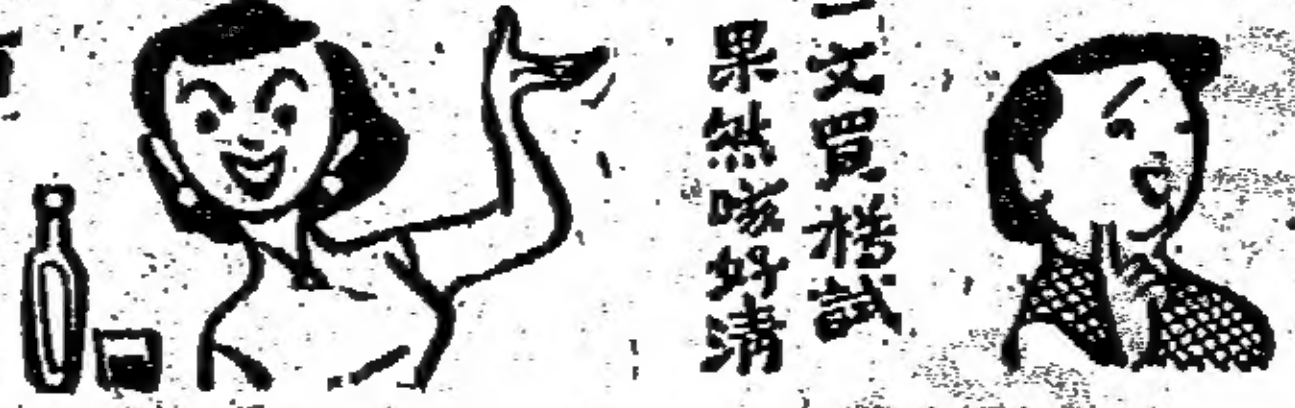 文買樽試
果然好清